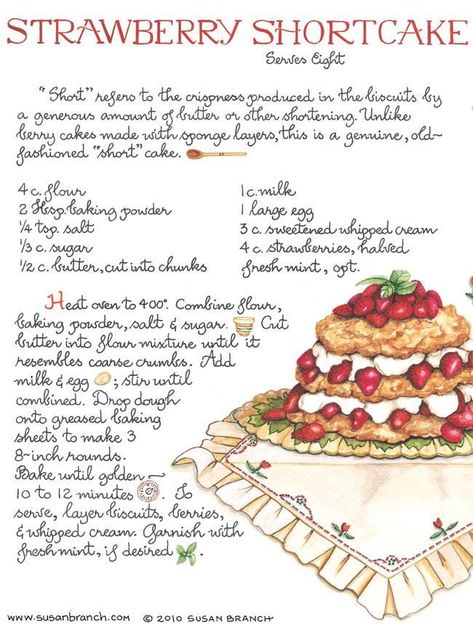 STRAWBERRY SHORTCAKE
Serves Eight
"Short" refers to the crispness produced in the biscuits by
a generous amount of butter or other shortening. Unlike
berry cakes made with sponge layers, this is a genuine, old-
fashioned "short" cake.
4 c. flour
2 Tbsp. baking powder
1/4 tsp. salt
1/3 c. sugar
1/2 c. butter, cut into chunks
1 c. milk
1 large egg
3 c. sweetened whipped cream
4 c. strawberries, halved
fresh mint, opt.
Heat oven to 400°. Combine flour,
baking powder, salt & sugar. Cut
butter into flour mixture until it
resembles coarse crumbs. Add
milk & egg ; stir until
combined. Drop dough
onto greased baking
sheets to make 3
8-inch rounds.
Bake until golden ~
10 to 12 minutes . To
serve, layer biscuits, berries,
& whipped cream. Garnish with
fresh mint, if desired .
www.susanbranch.com © 2010 SUSAN BRANCH